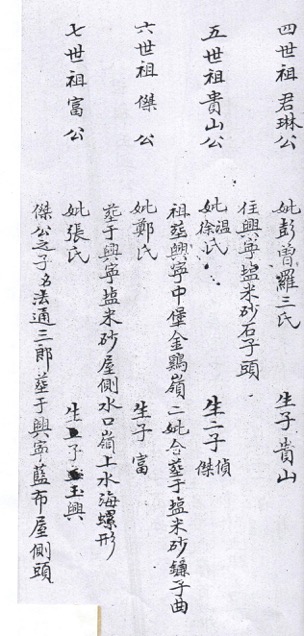 四世祖君琳公
妣彭曾羅三氏 生子貴山
住興寧塩米砂石子頭
五世祖貴山公
妣温徐氏 生二子偵傑
祖葬興寧中堡金鷄嶺二妣合葬于塩米砂鐮子曲
六世祖傑公
妣鄭氏 生子富
葬于興寧塩米砂屋側水口嶺上水海螺形
七世祖富公
妣張氏 生子玉興
傑公之子名法通三郎葬于興寧藍布屋側頭